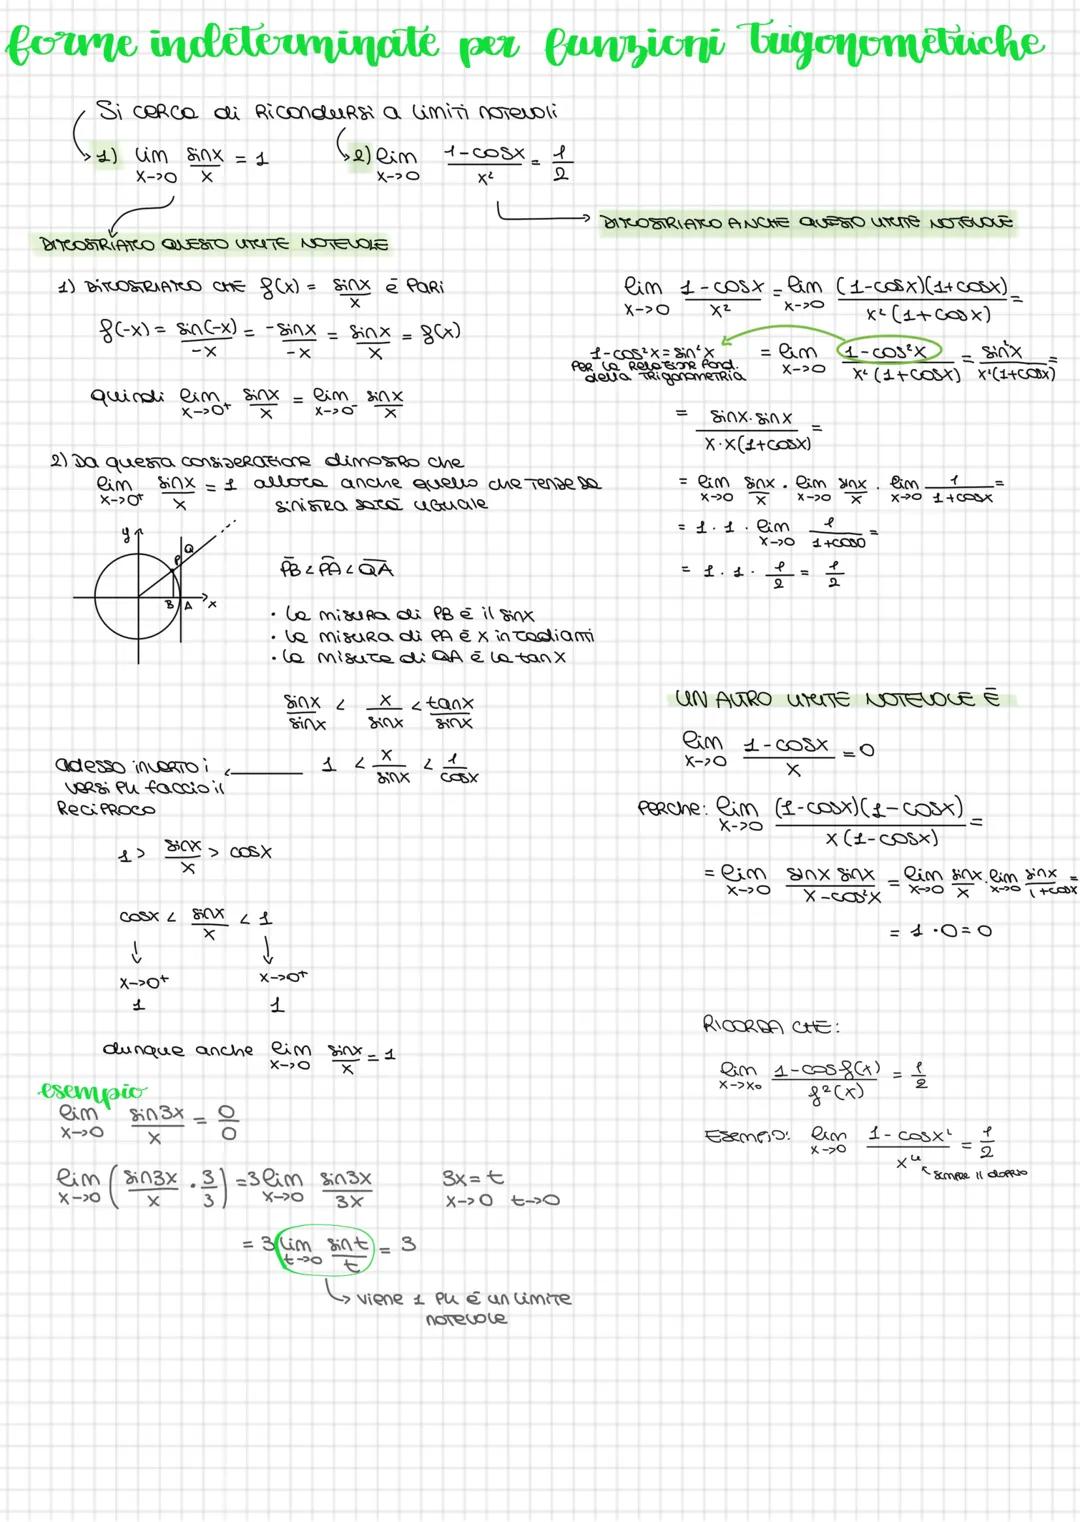 forme indeterminate per funzioni trigonometriche
Si cerca di ricondursi a limiti notevoli
1) lim x->0 sinx/x = 1
2) lim x->0 1-cosx/x² = 1/2
DIMOSTRIAMO QUESTO LIMITE NOTEVOLE
1) DIMOSTRIAMO CHE f(x) = sinx/x è PARI
f(-x) = sin(-x)/-x = -sinx/-x = sinx/x = f(x)
quindi lim x->0+ sinx/x = lim x->0- sinx/x
2) Da questa considerazione dimostro che
lim x->0+ sinx/x = 1 allora anche quello che tende da
sinistra sarà uguale
y
Q
P
B A x
PB < PA < QA
• la misura di PB è il sinx
• la misura di PA è x in radianti
• la misura di QA è la tanx
sinx/sinx < x/sinx < tanx/sinx
adesso inverto i
versi più faccio il
Reciproco
1 < x/sinx < 1/cosx
1 > sinx/x > cosx
cosx < sinx/x < 1
x->0+ x->0+
1 1
dunque anche lim x->0 sinx/x = 1
esempio
lim x->0 sin3x/x = 0/0
lim x->0 (sin3x/x · 3/3) = 3 lim x->0 sin3x/3x
3x = t
x->0 t->0
= 3 lim t->0 sint/t = 3
viene 1 più è un limite
notevole
DIMOSTRIAMO ANCHE QUESTO LIMITE NOTEVOLE
lim x->0 1-cosx/x² = lim x->0 (1-cosx)(1+cosx)/x²(1+cosx) =
1-cos²x = sin²x
PER la Relazione fond.
della trigonometria
= lim x->0 1-cos²x/x²(1+cosx) = sin²x/x²(1+cosx) =
= sinx·sinx/x·x(1+cosx) =
= lim x->0 sinx/x · lim x->0 sinx/x · lim x->0 1/1+cosx =
= 1·1· lim x->0 1/1+cos0 =
= 1·1· 1/2 = 1/2
UN ALTRO LIMITE NOTEVOLE È
lim x->0 1-cosx/x = 0
PERCHE: lim x->0 (1-cosx)(1-cosx)/x(1-cosx) =
= lim x->0 sinx sinx/x-cos²x = lim x->0 sinx/x · lim x->0 sinx/1+cosx =
= 1·0=0
RICORDA CHE:
lim x->x₀ 1-cosf(x)/f²(x) = 1/2
Esempio: lim x->0 1-cosx²/x⁴ = 1/2
sempre il doppio